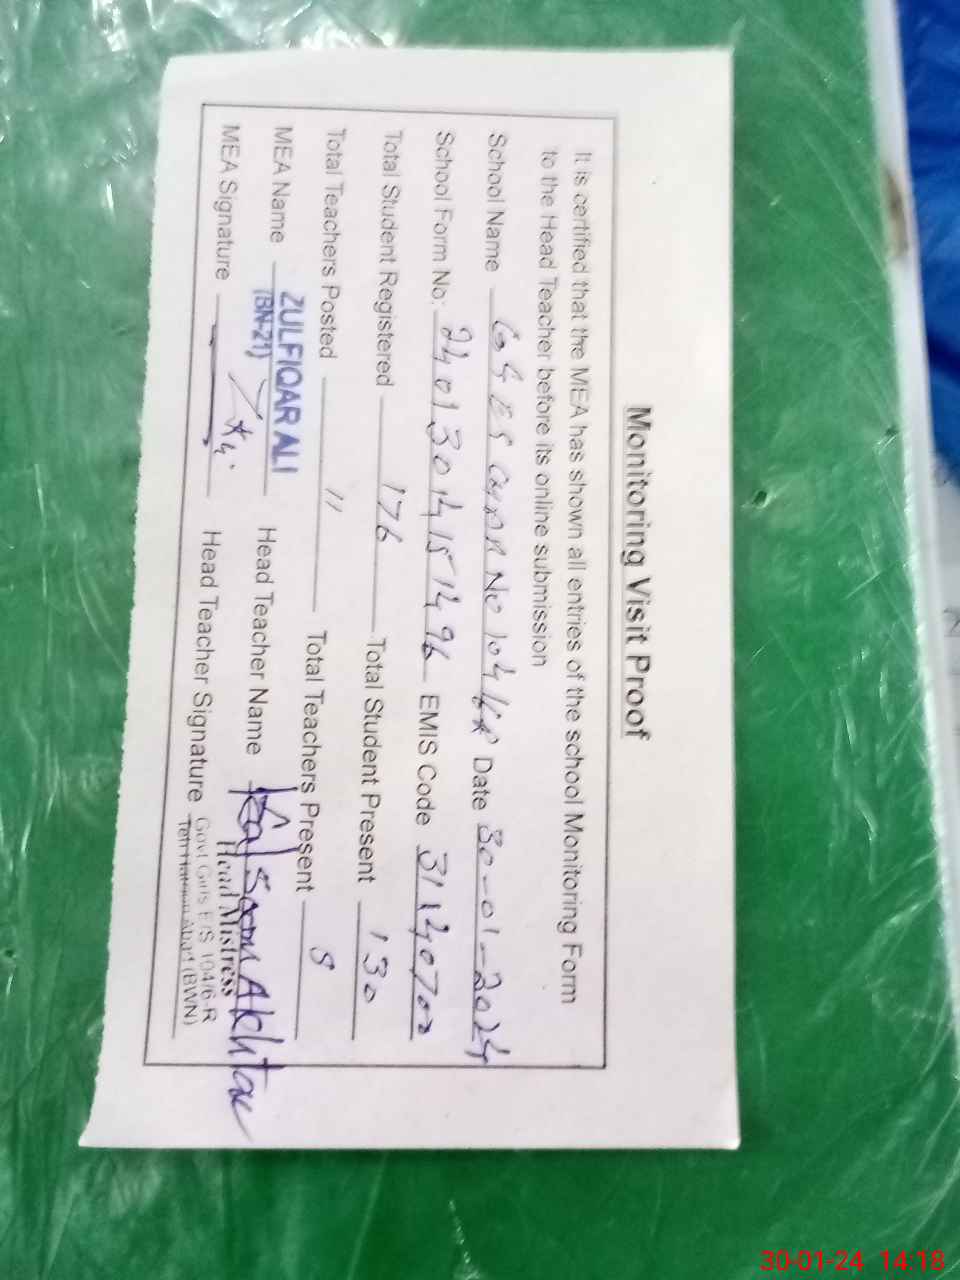 Monitoring Visit Proof
It is certified that the MEA has shown all entries of the school Monitoring Form
to the Head Teacher before its online submission
School Name GGES No 104/6R Date 30-01-2024
School Form No. EMIS Code
Total Student Registered 176 Total Student Present 130
Total Teachers Posted 11 Total Teachers Present
MEA Name ZULFIQAR ALI (BN-21) Head Teacher Name Kalsoom Akhtar
MEA Signature Head Teacher Signature
Head Mistress
Govt Girls E/S 104/6-R
Teh Haroon Abad (BWN)
30-01-24 14:18